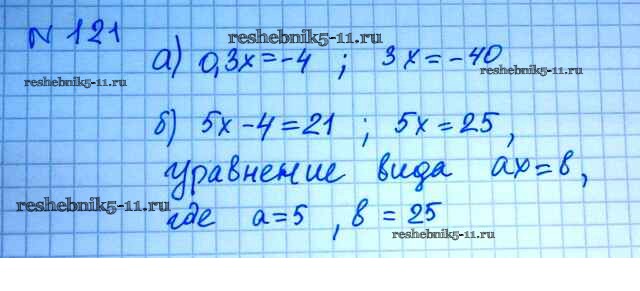 № 121
reshebnik5-11.ru
а) 0,3x=-4 ; 3x=-40
reshebnik5-11.ru
reshebnik5-11.ru
б) 5x-4=21 ; 5x=25,
уравнение вида ax=b,
reshebnik5-11.ru
где a=5, b=25
reshebnik5-11.ru